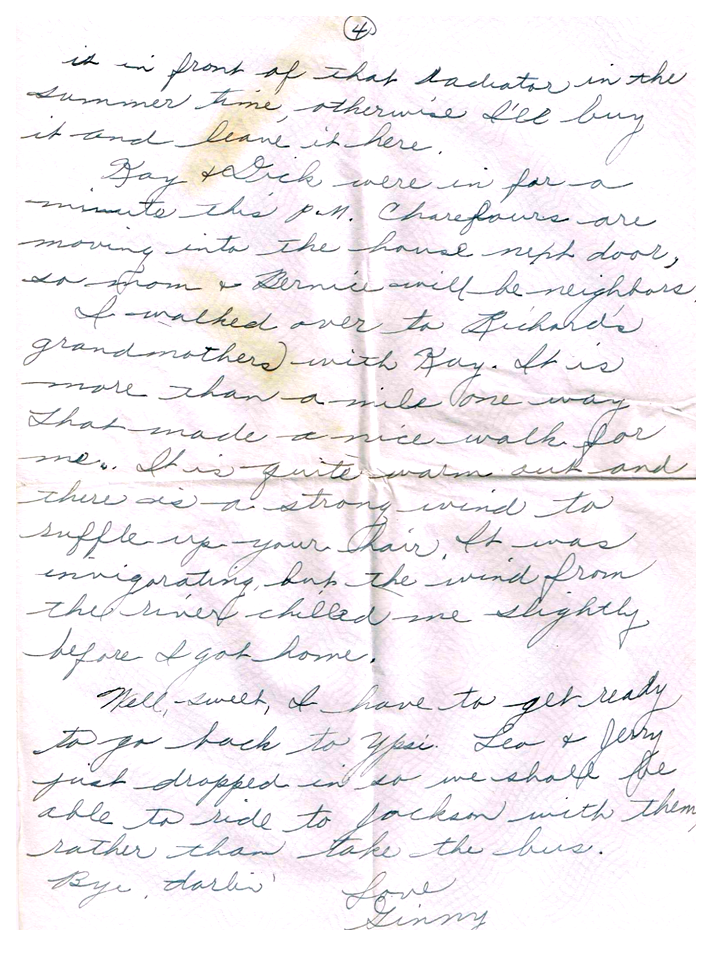 4
it in front of that radiator in the
summer time, otherwise I'll buy
it and leave it here.
Kay & Dick were in for a
minute this p.m. are
moving into the house next door,
so mom & Bernice will be neighbors.
I walked over to Richard's
grandmothers) with Kay. It is
more than a mile one way
that made a nice walk for
me. It is quite warm out and
there is a strong wind to
ruffle up your hair. It was
invigorating, but the wind from
the river chilled me slightly
before I got home.
Well, sweet, I have to get ready
to go back to Ypsi. Leo & Jerry
just dropped in so we shall be
able to ride to Jackson with them,
rather than take the bus.
Bye, darlin'
Love
Ginny